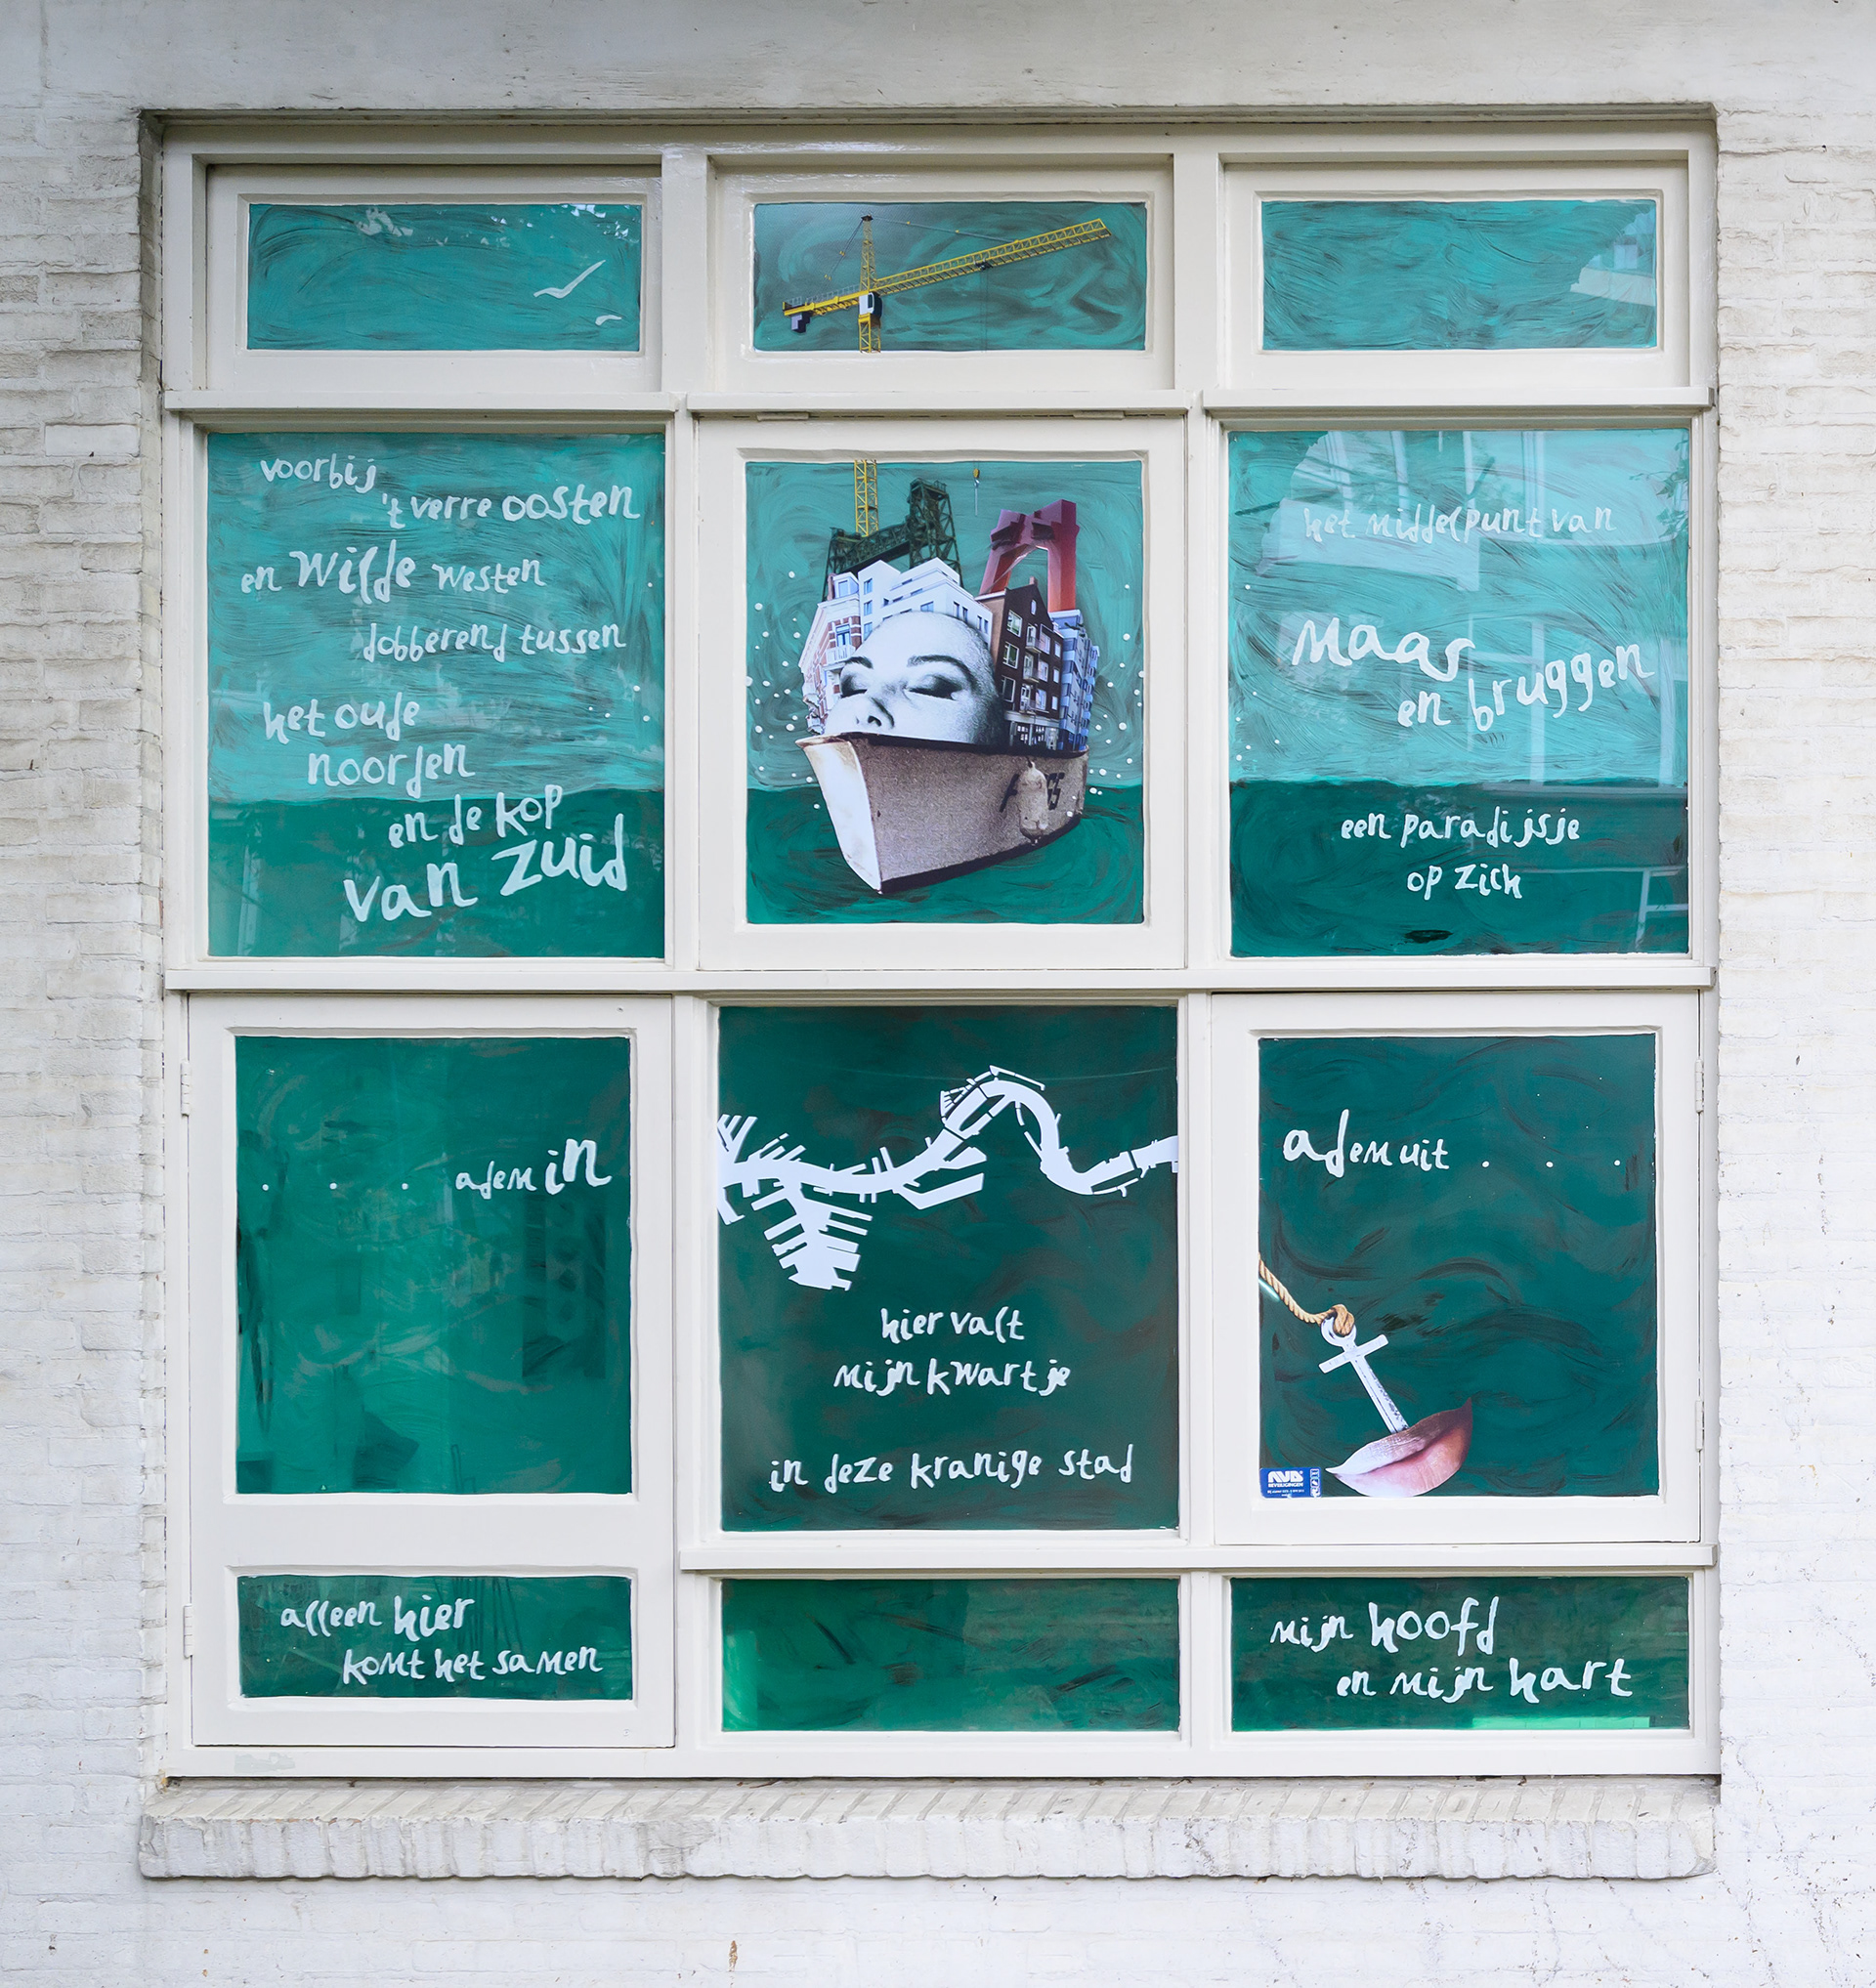 voorbij
't verre oosten
en Wilde westen
dobberend tussen
het oude
noorden
en de kop
van zuid
het middelpunt van
Maas
en bruggen
een paradijsje
op zich
. . . adem in
hier valt
mijn kwartje
in deze kranige stad
adem uit . . .
alleen hier
komt het samen
mijn hoofd
en mijn hart